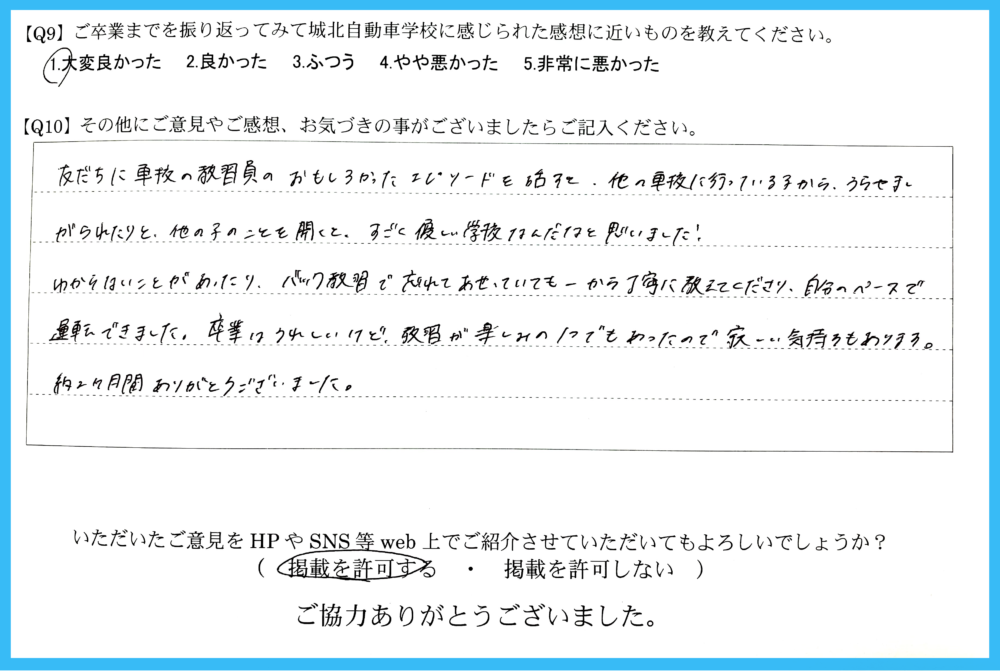 【Q9】ご卒業までを振り返ってみて城北自動車学校に感じられた感想に近いものを教えてください。
1.大変良かった 2.良かった 3.ふつう 4.やや悪かった 5.非常に悪かった
【Q10】その他にご意見やご感想、お気づきの事がございましたらご記入ください。
友だちに車校の教習員のおもしろかったエピソードを話すと、他の車校に行っている子から、うらやまし
がられたりと、他の子のことを聞くと、すごく優しい学校なんだなと思いました!
わからないことがあったり、バック教習で忘れてあせっていても一から丁寧に教えてくださり、自分のペースで
運転できました。卒業はうれしいけど、教習が楽しみの1つでもあったので寂しい気持ちもあります。
約2ヶ月間ありがとうございました。
いただいたご意見をHPやSNS等web上でご紹介させていただいてもよろしいでしょうか?
( 掲載を許可する ・ 掲載を許可しない )
ご協力ありがとうございました。